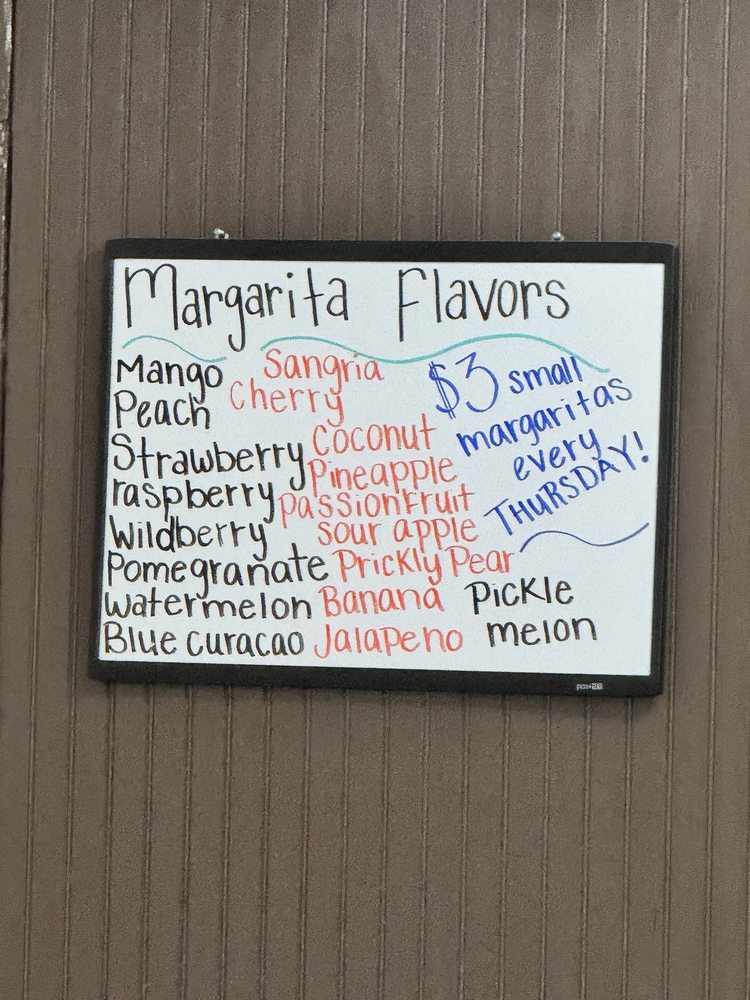 Margarita Flavors
Mango
Peach
Strawberry
raspberry
Wildberry
Pomegranate
watermelon
Blue curacao
Sangria
Cherry
Coconut
Pineapple
passionfruit
sour apple
Prickly Pear
Banana
Jalapeno
$3 small
margaritas
every
THURSDAY!
Pickle
melon